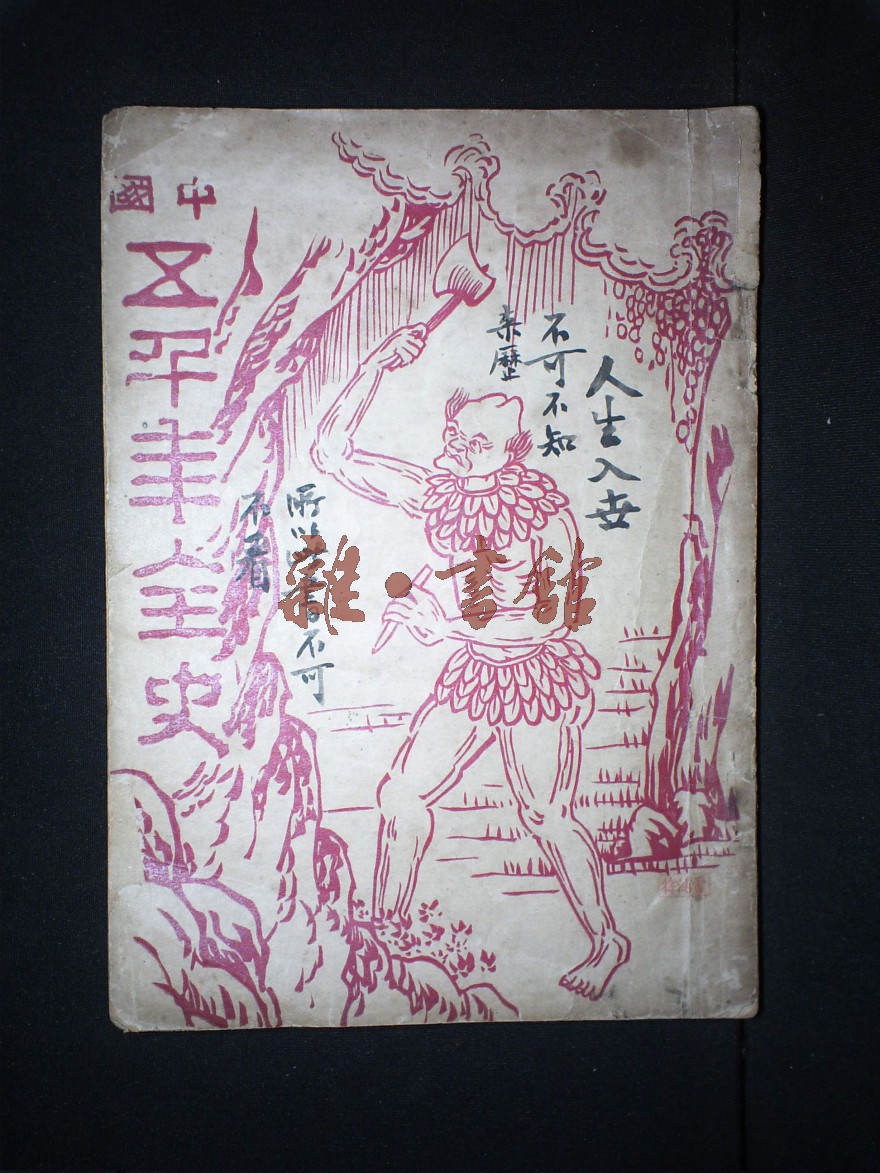 中國
五千年全史
人生入世
不可不知
来歷
所以書不可
不看
雜·書館